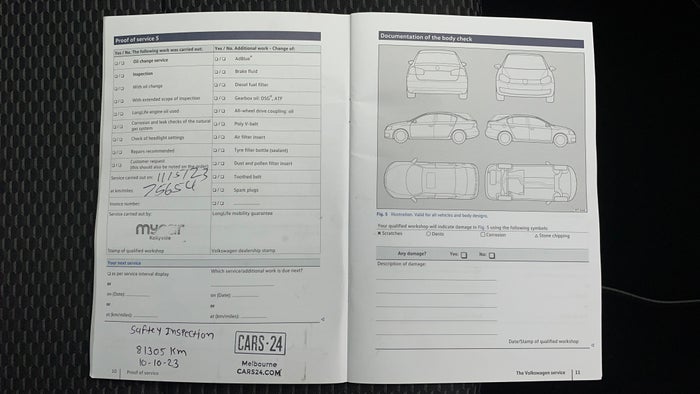 Proof of service 5
Yes / No. The following work was carried out:
Yes / No. Additional work - Change of:
☐/☐ Oil change service
☐/☐ AdBlue®
☐/☐ Inspection
☐/☐ Brake fluid
☐/☐ With oil change
☐/☐ Diesel fuel filter
☐/☐ With extended scope of inspection
☐/☐ Gearbox oil: DSG®, ATF
☐/☐ LongLife engine oil used
☐/☐ All-wheel drive coupling: oil
☐/☐ Corrosion and leak checks of the natural
gas system
☐/☐ Poly V-belt
☐/☐ Check of headlight settings
☐/☐ Air filter insert
☐/☐ Repairs recommended
☐/☐ Tyre filler bottle (sealant)
☐/☐ Customer request
(this should also be noted on the order)
☐/☐ Dust and pollen filter insert
Service carried out on: 11/5/23
☐/☐ Toothed belt
at km/miles: 75654
☐/☐ Spark plugs
Invoice number:
☐/☐
Service carried out by:
LongLife mobility guarantee
mycar
Stamp of qualified workshop
Volkswagen dealership stamp
Your next service
☐ as per service interval display
Which service/additional work is due next?
or
on (Date):
on (Date):
or
or
at (km/miles):
at (km/miles):
Saftey Inspection
81305 Km
10-10-23
CARS·24
Melbourne
CARS24.COM
10 Proof of service
Documentation of the body check
Fig. 5 Illustration. Valid for all vehicles and body designs.
Your qualified workshop will indicate damage in Fig. 5 using the following symbols:
Scratches
Dents
Corrosion
Stone chipping
Any damage? Yes: ☐ No: ☐
Description of damage:
Date/Stamp of qualified workshop
The Volkswagen service 11